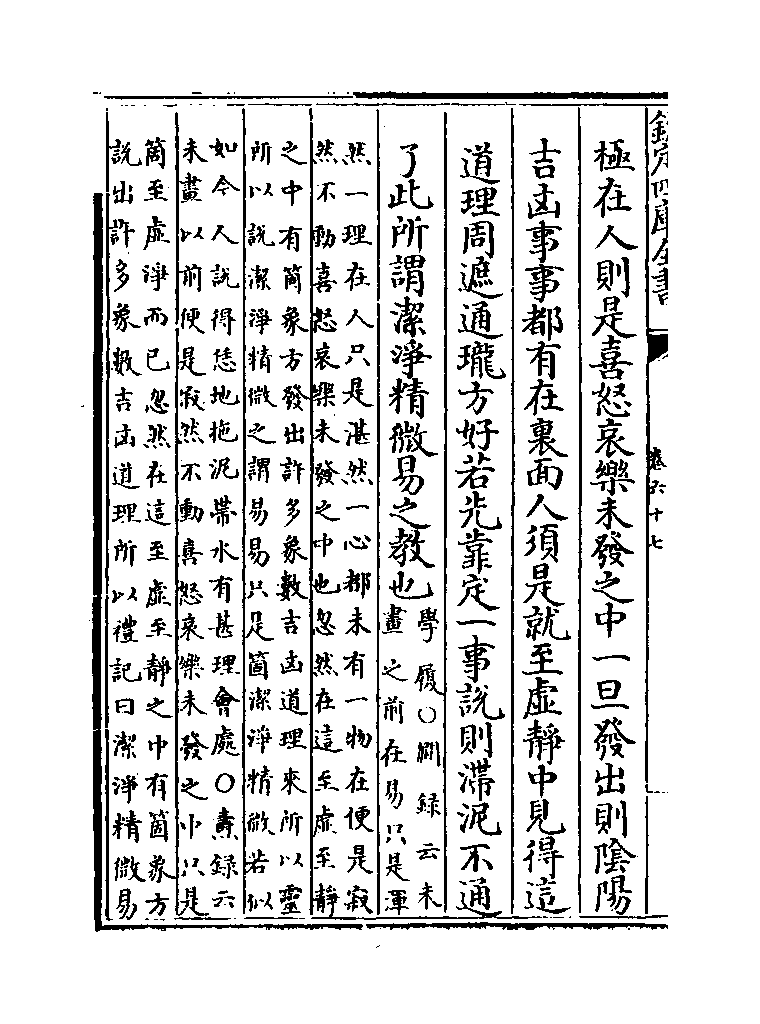 欽定四庫全書
卷六十七
極在人則是喜怒哀樂未發之中一旦發出則陰陽
吉凶事事都有在裏面人須是就至虛靜中見得這
道理周遮通瓏方好若先靠定一事說則滯泥不通
了此所謂潔淨精微易之教也
學履○淵録云未
畫之前在易只是渾
然一理在人只是湛然一心都未有一物在便是寂
然不動喜怒哀樂未發之中也忽然在這至虛至靜
之中有箇象方發出許多象數吉凶道理來所以靈
所以說潔淨精微之謂易易只是箇潔淨精微若似
如今人說得恁地拖泥帶水有甚理會處○燾録云
未畫以前便是寂然不動喜怒哀樂未發之中只是
箇至虛淨而已忽然在這至虛至靜之中有箇象方
說出許多象數吉凶道理所以禮記曰潔淨精微易